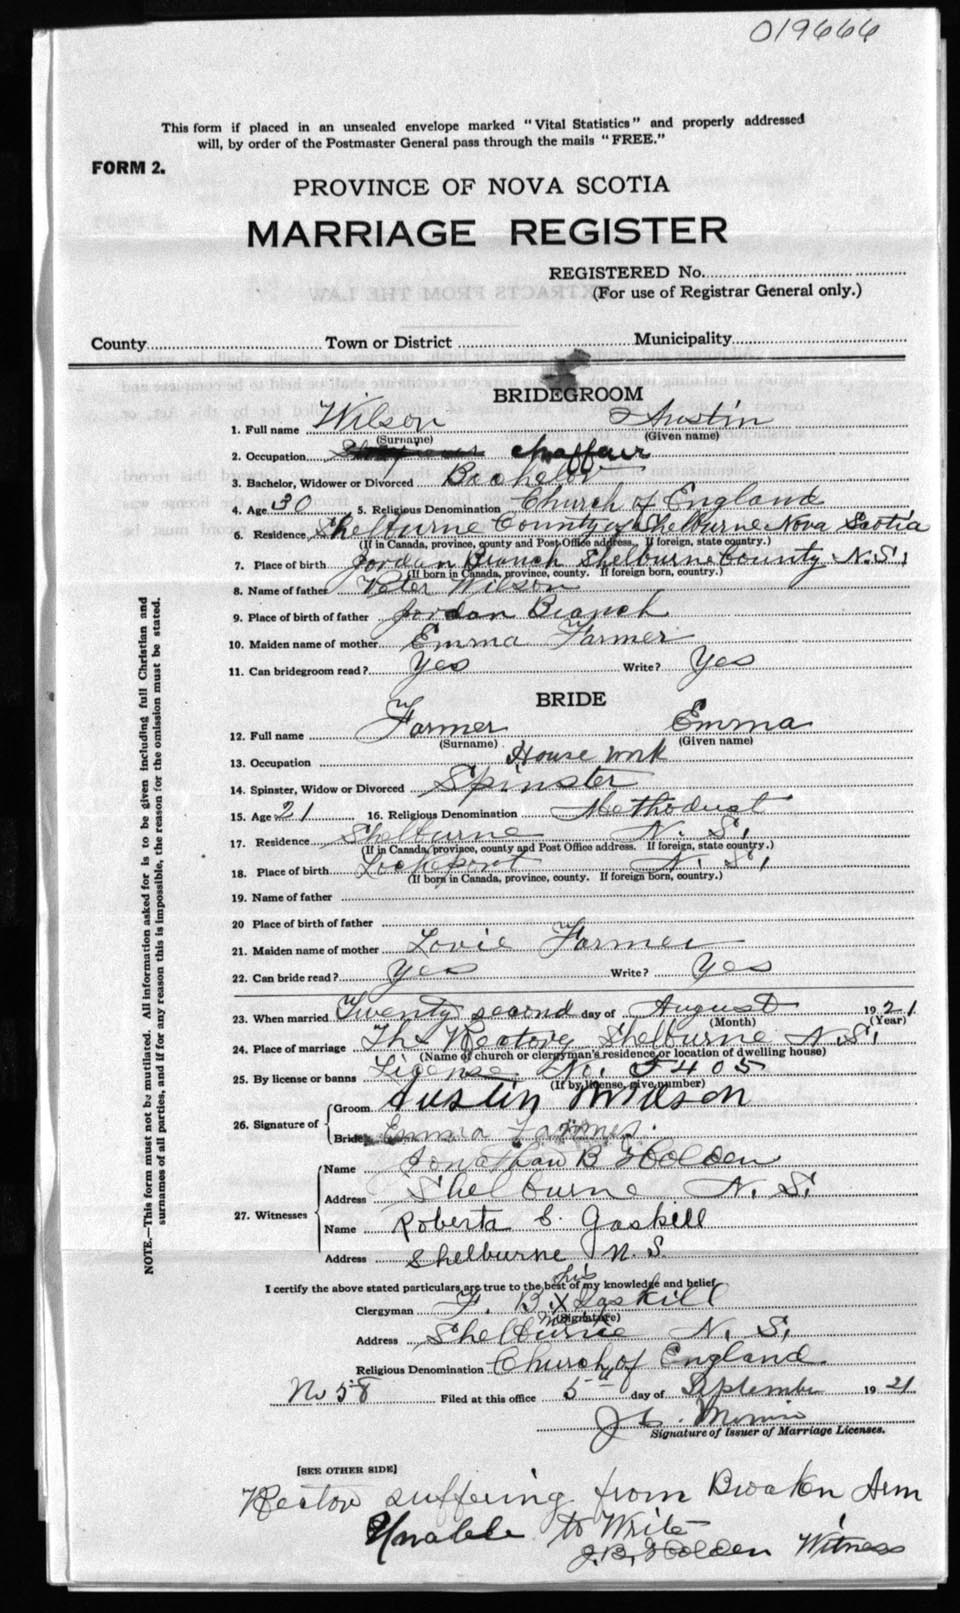 019666
This form if placed in an unsealed envelope marked "Vital Statistics" and properly addressed
will, by order of the Postmaster General pass through the mails "FREE."
FORM 2.
PROVINCE OF NOVA SCOTIA
MARRIAGE REGISTER
REGISTERED No.
(For use of Registrar General only.)
County Town or District Municipality
BRIDEGROOM
1. Full name Wilson Austin
(Surname) (Given name)
2. Occupation chaffeur
3. Bachelor, Widower or Divorced Bachelor
4. Age 30 5. Religious Denomination Church of England
6. Residence Shelburne County of Shelburne Nova Scotia
(If in Canada, province, county and Post Office address. If foreign, state country.)
7. Place of birth Jordan Branch Shelburne County N.S.
(If born in Canada, province, county. If foreign born, country.)
8. Name of father Peter Wilson
9. Place of birth of father Jordan Branch
10. Maiden name of mother Emma Farmer
11. Can bridegroom read? Yes Write? Yes
BRIDE
12. Full name Farmer Emma
(Surname) (Given name)
13. Occupation House work
14. Spinster, Widow or Divorced Spinster
15. Age 21 16. Religious Denomination Methodist
17. Residence Shelburne N. S.
(If in Canada, province, county and Post Office address. If foreign, state country.)
18. Place of birth Lockeport N. S.
(If born in Canada, province, county. If foreign born, country.)
19. Name of father
20 Place of birth of father
21. Maiden name of mother Lovie Farmer
22. Can bride read? Yes Write? Yes
23. When married Twenty second day of August 1921
(Month) (Year)
24. Place of marriage The Rectory Shelburne N.S.
(Name of church or clergyman's residence or location of dwelling house)
25. By license or banns License No. F405
(If by license, give number)
26. Signature of Groom Austin Wilson
Bride Emma Farmer.
27. Witnesses
Name Jonathan B Holden
Address Shelburne N. S.
Name Roberta E. Gaskill
Address Shelburne N. S.
I certify the above stated particulars are true to the best of my knowledge and belief
his
Clergyman F. B. X Gaskill
(Signature)
mark
Address Shelburne N. S.
Religious Denomination Church of England.
No 58 Filed at this office 5th day of September 1921
J.
Signature of Issuer of Marriage Licenses.
[SEE OTHER SIDE]
Rector suffering from Broken Arm
Unable to Write
J.B. Holden Witness
NOTE.—This form must not be mutilated. All information asked for is to be given including full Christian and
surnames of all parties, and if for any reason this is impossible, the reason for the omission must be stated.